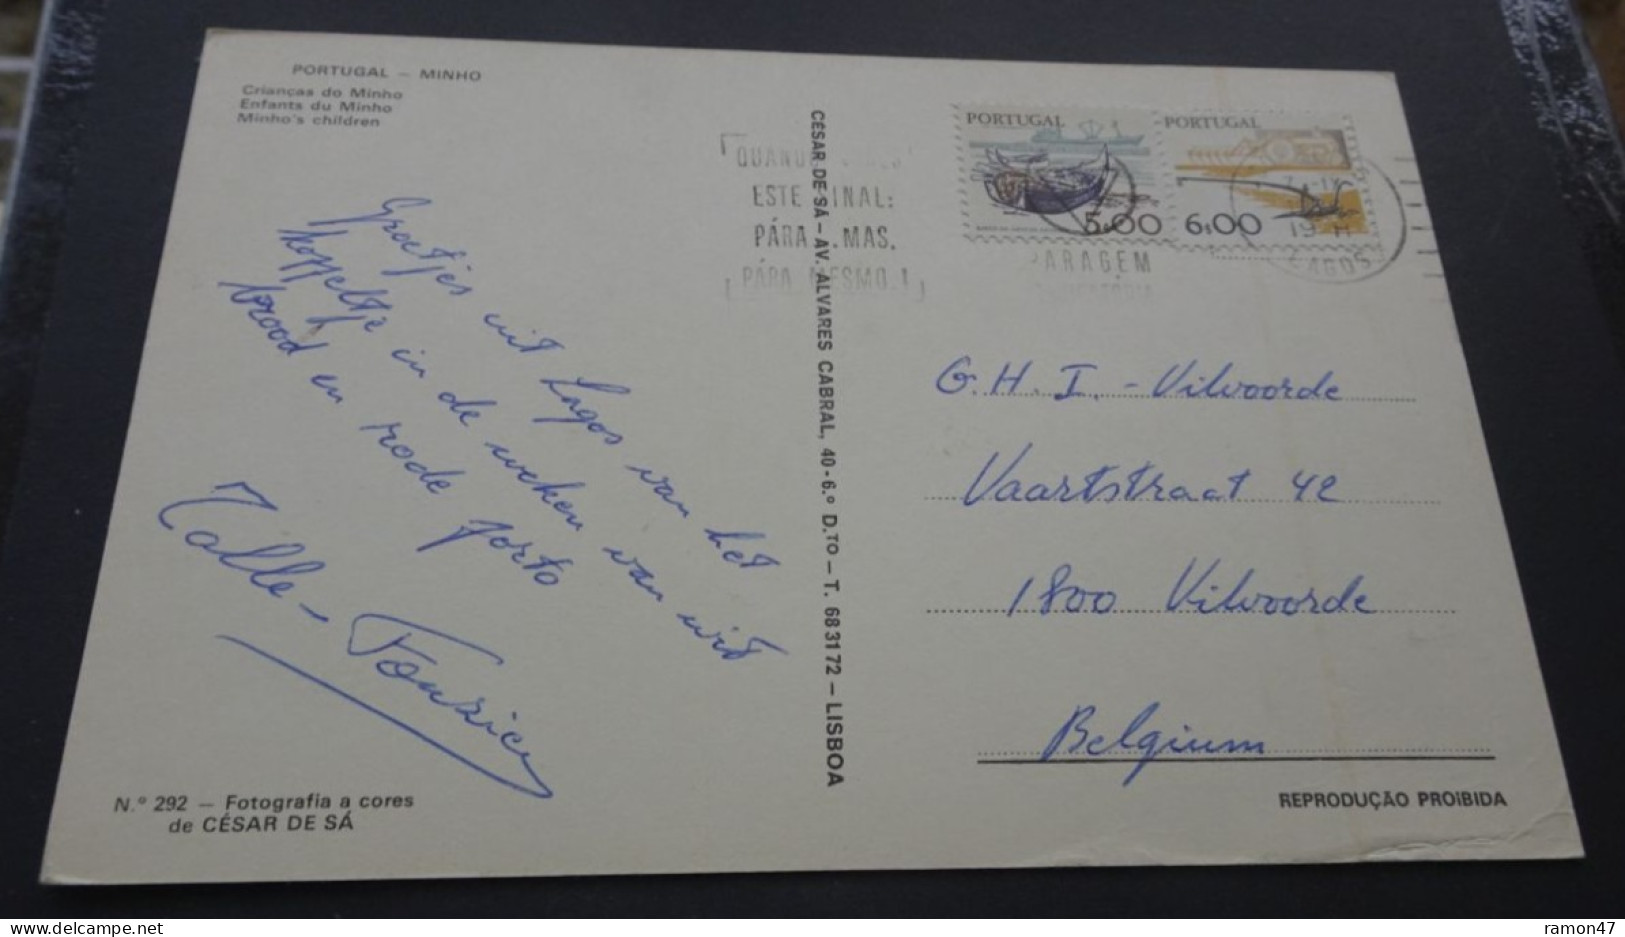 PORTUGAL – MINHO
Crianças do Minho
Enfants du Minho
Minho's children
Groetjes uit Lagos van het
koppeltje in de weken van wit
brood en rode porto
Tolle - Fourier
N.º 292 – Fotografia a cores
de CÉSAR DE SÁ
CÉSAR DE SÁ – AV. ALVARES CABRAL, 40-6.º D.TO – T. 683172 – LISBOA
ESTE SINAL:
PÁRA...MAS,
PÁRA MESMO!
PARAGEM
PORTUGAL
5$00
PORTUGAL
6$00
LAGOS
G.H.I. - Vilvoorde
Vaartstraat 42
1800 Vilvoorde
Belgium
REPRODUÇÃO PROIBIDA
delcampe.net
ramon47